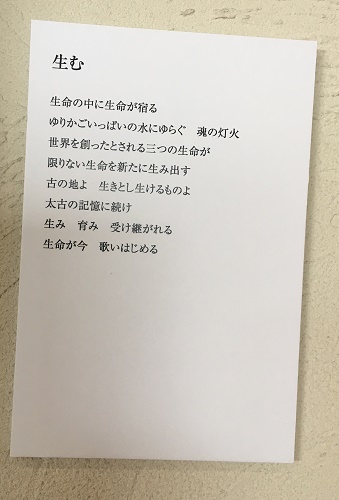 生む
生命の中に生命が宿る
ゆりかごいっぱいの水にゆらぐ　魂の灯火
世界を創ったとされる三つの生命が
限りない生命を新たに生み出す
古の地よ　生きとし生けるものよ
太古の記憶に続け
生み　育み　受け継がれる
生命が今　歌いはじめる